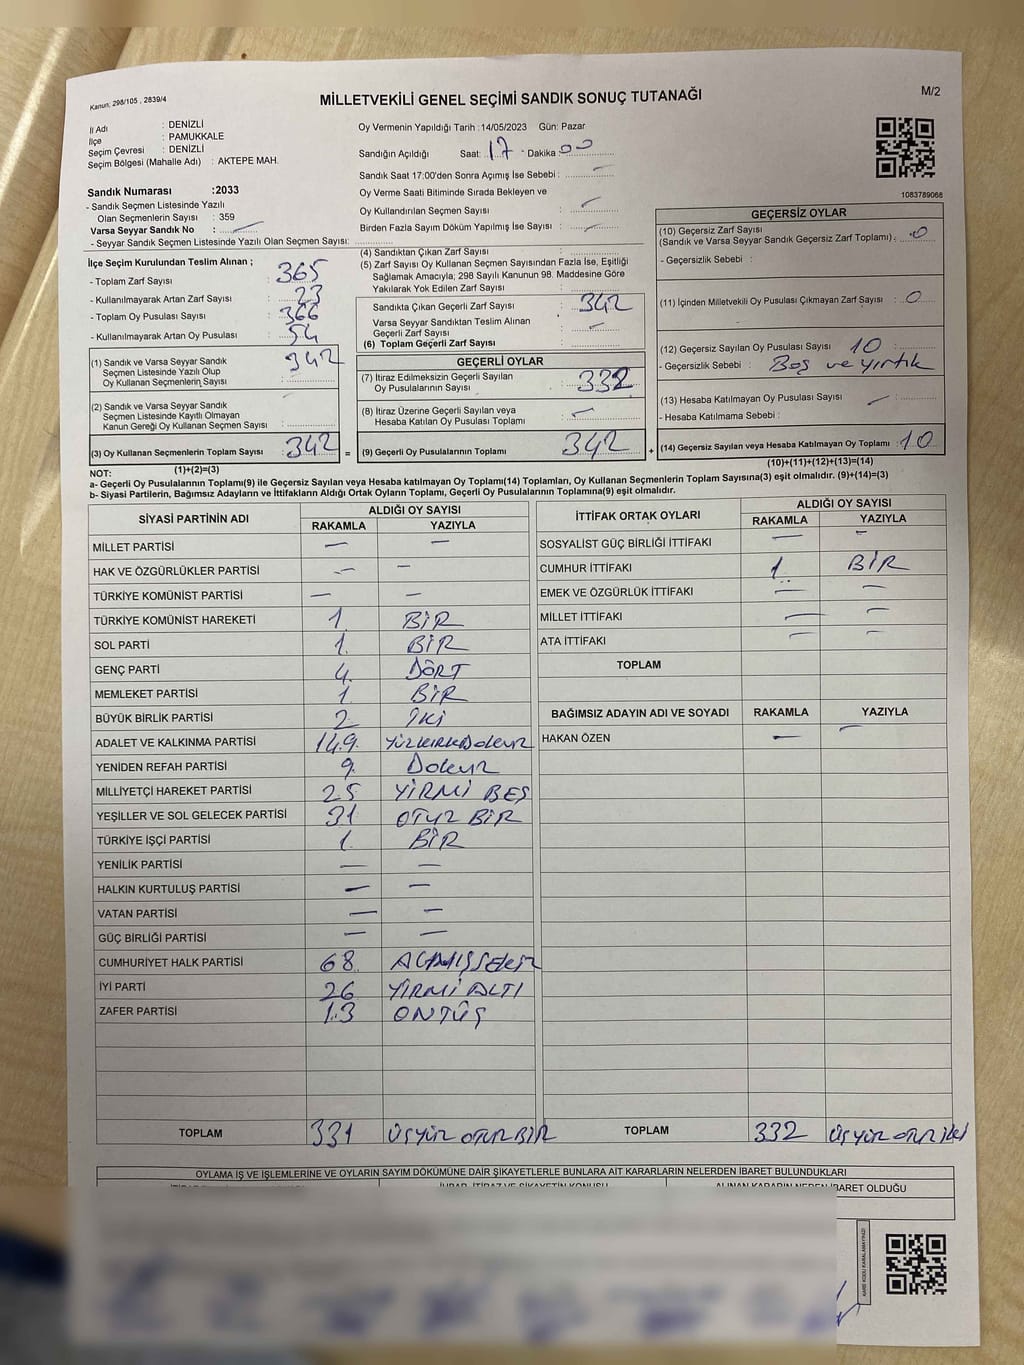 Kanun, 298/105 , 2839/4
MİLLETVEKİLİ GENEL SEÇİMİ SANDIK SONUÇ TUTANAĞI
M/2
İl Adı : DENİZLİ
İlçe : PAMUKKALE
Seçim Çevresi : DENİZLİ
Seçim Bölgesi (Mahalle Adı) : AKTEPE MAH.
Sandık Numarası :2033
- Sandık Seçmen Listesinde Yazılı
Olan Seçmenlerin Sayısı : 359
Varsa Seyyar Sandık No : —
- Seyyar Sandık Seçmen Listesinde Yazılı Olan Seçmen Sayısı:
Oy Vermenin Yapıldığı Tarih :14/05/2023 Gün: Pazar
Sandığın Açıldığı Saat: 17 Dakika: 00
Sandık Saat 17:00'den Sonra Açımış İse Sebebi : —
Oy Verme Saati Bitiminde Sırada Bekleyen ve
Oy Kullandırılan Seçmen Sayısı : —
Birden Fazla Sayım Döküm Yapılmış İse Sayısı : —
1083789068
İlçe Seçim Kurulundan Teslim Alınan ;
- Toplam Zarf Sayısı : 365
- Kullanılmayarak Artan Zarf Sayısı : 23
- Toplam Oy Pusulası Sayısı : 366
- Kullanılmayarak Artan Oy Pusulası : 54
(1) Sandık ve Varsa Seyyar Sandık
Seçmen Listesinde Yazılı Olup
Oy Kullanan Seçmenlerin Sayısı : 342
(2) Sandık ve Varsa Seyyar Sandık
Seçmen Listesinde Kayıtlı Olmayan
Kanun Gereği Oy Kullanan Seçmen Sayısı :
(3) Oy Kullanan Seçmenlerin Toplam Sayısı : 342 =
(4) Sandıktan Çıkan Zarf Sayısı :
(5) Zarf Sayısı Oy Kullanan Seçmen Sayısından Fazla İse, Eşitliği
Sağlamak Amacıyla; 298 Sayılı Kanunun 98. Maddesine Göre
Yakılarak Yok Edilen Zarf Sayısı :
Sandıkta Çıkan Geçerli Zarf Sayısı : 342
Varsa Seyyar Sandıktan Teslim Alınan
Geçerli Zarf Sayısı : —
(6) Toplam Geçerli Zarf Sayısı :
GEÇERLİ OYLAR
(7) İtiraz Edilmeksizin Geçerli Sayılan
Oy Pusulalarının Sayısı : 332
(8) İtiraz Üzerine Geçerli Sayılan veya
Hesaba Katılan Oy Pusulası Toplamı : —
(9) Geçerli Oy Pusulalarının Toplamı : 342 +
GEÇERSİZ OYLAR
(10) Geçersiz Zarf Sayısı
(Sandık ve Varsa Seyyar Sandık Geçersiz Zarf Toplamı) : 0
- Geçersizlik Sebebi :
(11) İçinden Milletvekili Oy Pusulası Çıkmayan Zarf Sayısı : 0
(12) Geçersiz Sayılan Oy Pusulası Sayısı : 10
- Geçersizlik Sebebi : Boş ve yırtık
(13) Hesaba Katılmayan Oy Pusulası Sayısı : —
- Hesaba Katılmama Sebebi :
(14) Geçersiz Sayılan veya Hesaba Katılmayan Oy Toplamı : 10
NOT: (1)+(2)=(3) (10)+(11)+(12)+(13)=(14)
a- Geçerli Oy Pusulalarının Toplamı(9) ile Geçersiz Sayılan veya Hesaba katılmayan Oy Toplamı(14) Toplamları, Oy Kullanan Seçmenlerin Toplam Sayısına(3) eşit olmalıdır. (9)+(14)=(3)
b- Siyasi Partilerin, Bağımsız Adayların ve İttifakların Aldığı Ortak Oyların Toplamı, Geçerli Oy Pusulalarının Toplamına(9) eşit olmalıdır.
SİYASİ PARTİNİN ADI ALDIĞI OY SAYISI
RAKAMLA YAZIYLA
MİLLET PARTİSİ — —
HAK VE ÖZGÜRLÜKLER PARTİSİ — —
TÜRKİYE KOMÜNİST PARTİSİ — —
TÜRKİYE KOMÜNİST HAREKETİ 1 BİR
SOL PARTİ 1 BİR
GENÇ PARTİ 4 DÖRT
MEMLEKET PARTİSİ 1 BİR
BÜYÜK BİRLİK PARTİSİ 2 İKİ
ADALET VE KALKINMA PARTİSİ 149 YÜZKIRKDokuz
YENİDEN REFAH PARTİSİ 9 Dokuz
MİLLİYETÇİ HAREKET PARTİSİ 25 YİRMİ BEŞ
YEŞİLLER VE SOL GELECEK PARTİSİ 31 OTUZ BİR
TÜRKİYE İŞÇİ PARTİSİ 1 BİR
YENİLİK PARTİSİ — —
HALKIN KURTULUŞ PARTİSİ — —
VATAN PARTİSİ — —
GÜÇ BİRLİĞİ PARTİSİ — —
CUMHURİYET HALK PARTİSİ 68 ALTMIŞSEKİZ
İYİ PARTİ 26 YİRMİ ALTI
ZAFER PARTİSİ 13 ONÜÇ
TOPLAM 331 ÜÇYÜZ OTUZ BİR
İTTİFAK ORTAK OYLARI ALDIĞI OY SAYISI
RAKAMLA YAZIYLA
SOSYALİST GÜÇ BİRLİĞİ İTTİFAKI — —
CUMHUR İTTİFAKI 1 BİR
EMEK VE ÖZGÜRLÜK İTTİFAKI — —
MİLLET İTTİFAKI — —
ATA İTTİFAKI — —
TOPLAM
BAĞIMSIZ ADAYIN ADI VE SOYADI RAKAMLA YAZIYLA
HAKAN ÖZEN — —
TOPLAM 332 ÜÇYÜZ OTUZ İKİ
OYLAMA İŞ VE İŞLEMLERİNE VE OYLARIN SAYIM DÖKÜMÜNE DAİR ŞİKAYETLERLE BUNLARA AİT KARARLARIN NELERDEN İBARET BULUNDUKLARI
İHBAR, İTİRAZ VE ŞİKAYETİN KONUSU ALINAN KARARIN NEDEN İBARET OLDUĞU
KARE KODU KARALAMAYINIZ!